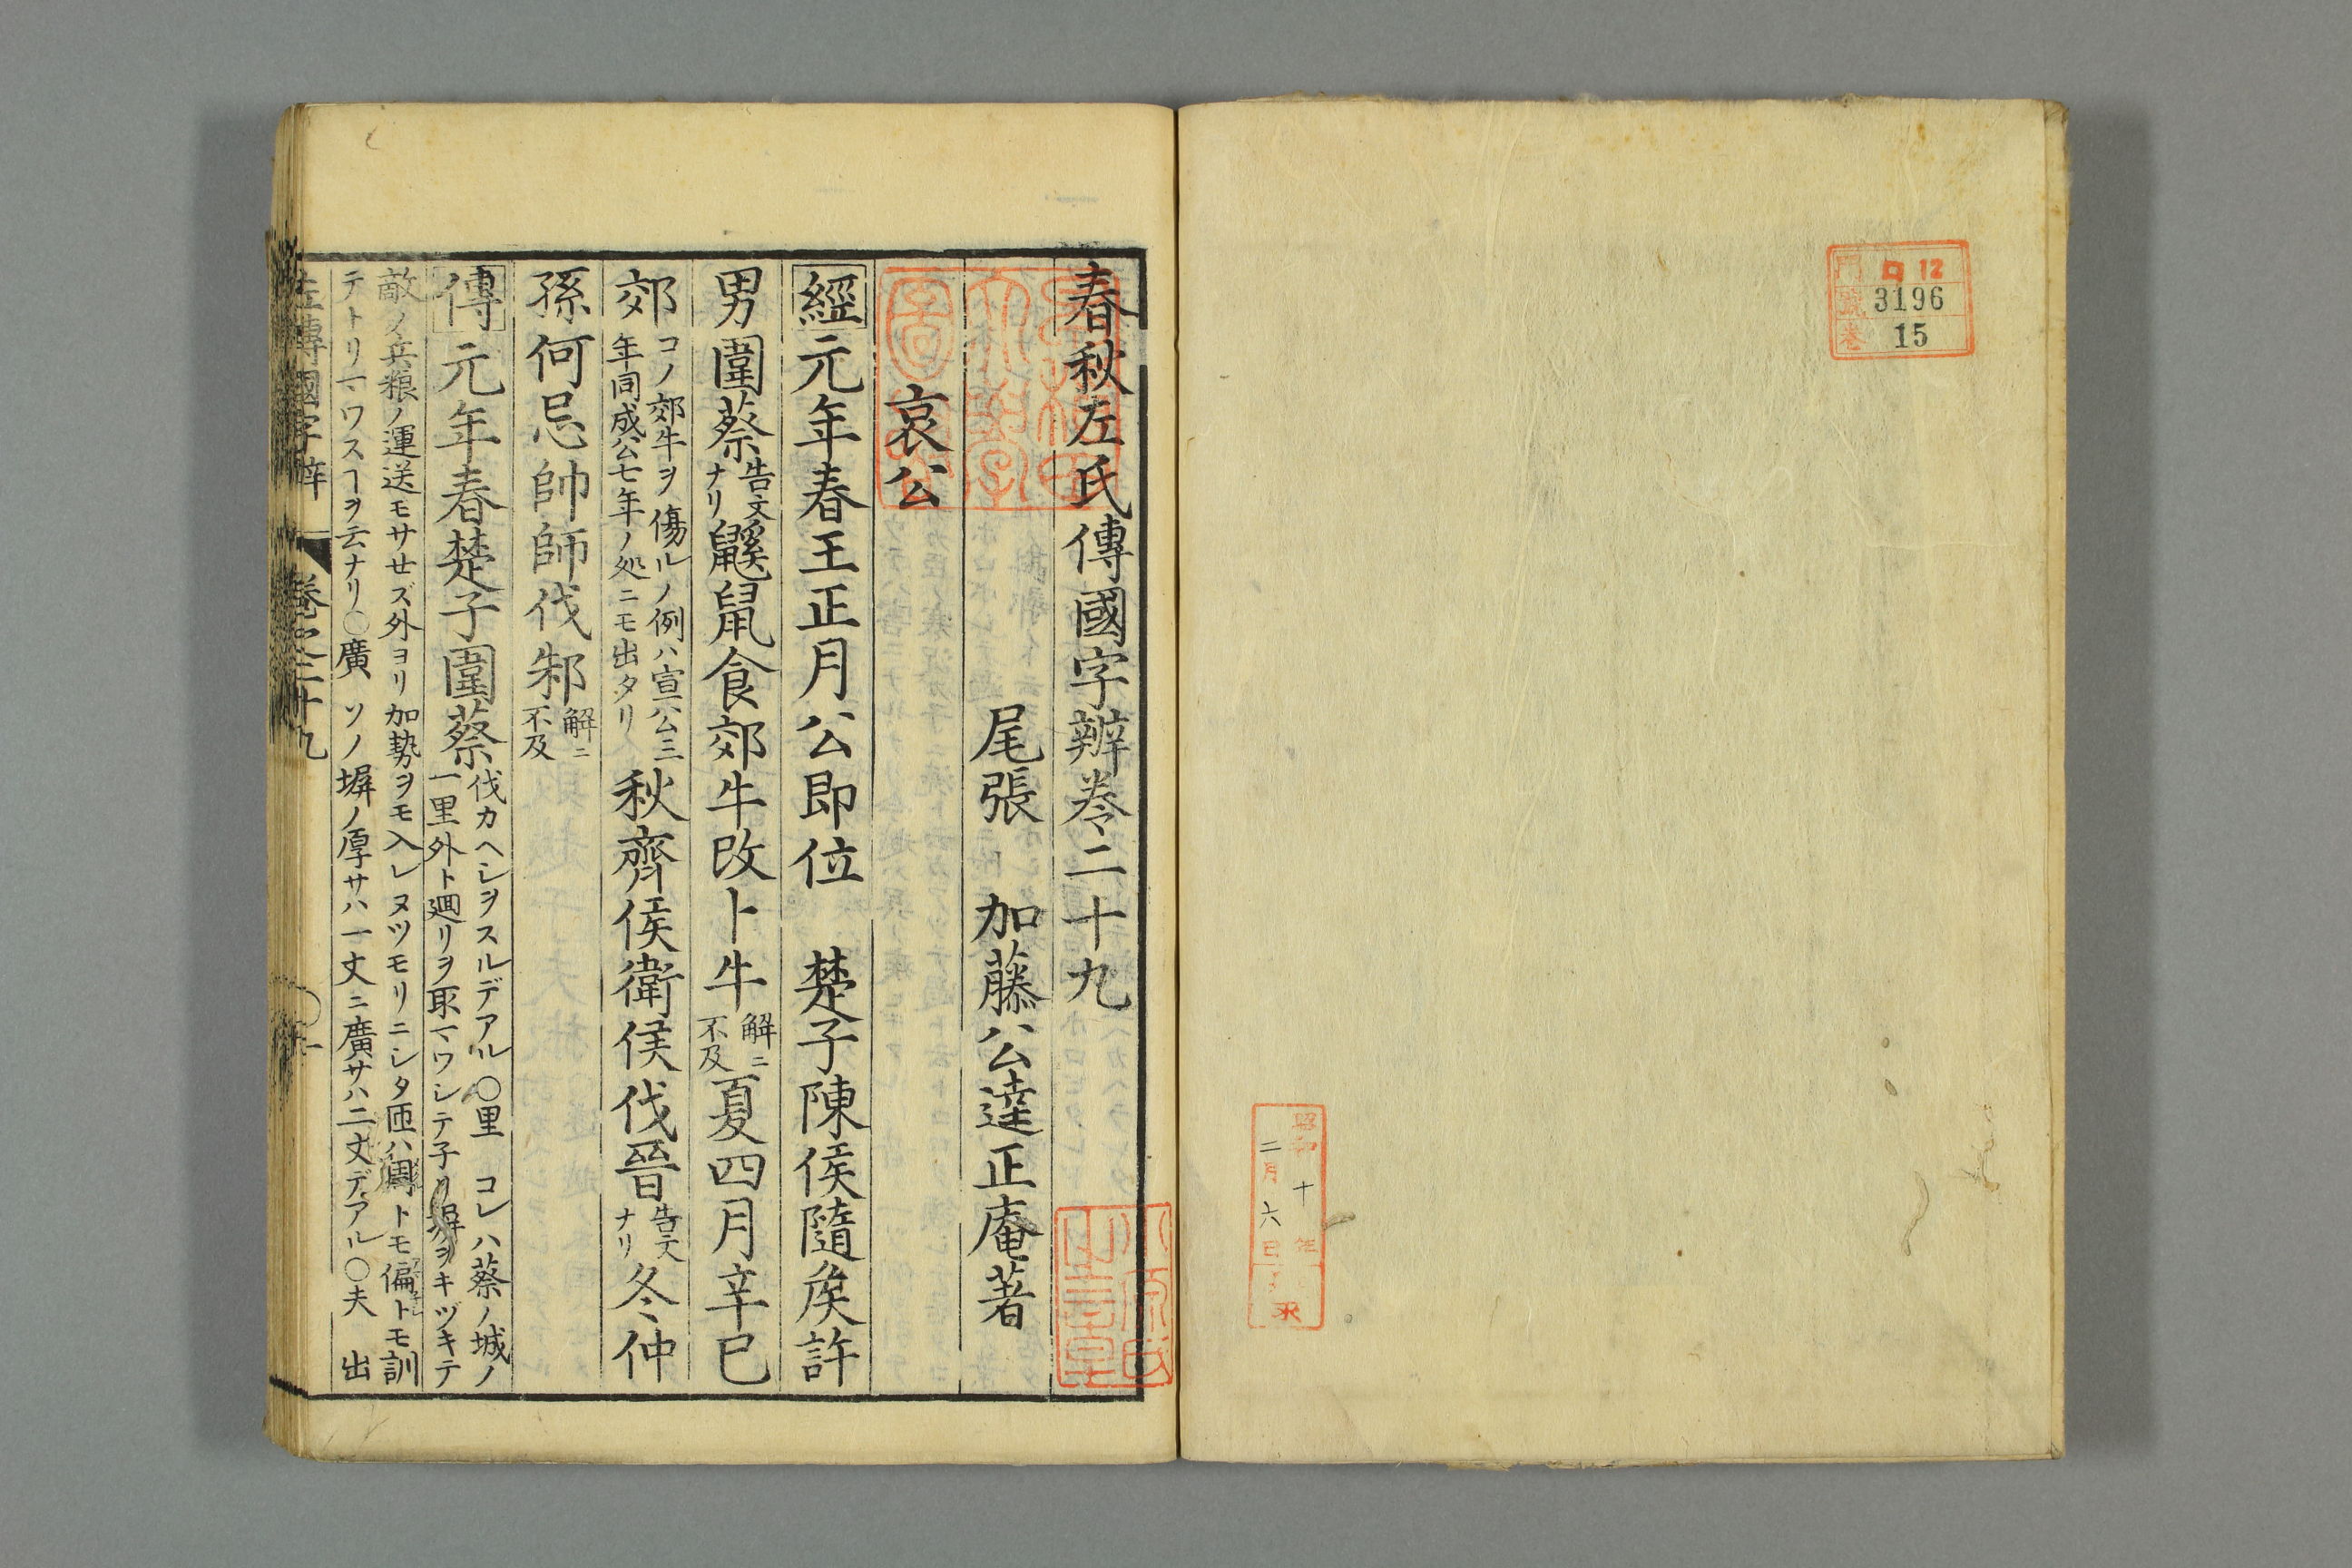 門 ロ 12
號 3196
卷 15
昭和十年
二月六日
春秋左氏傳國字辨卷二十九
尾張 加藤公逵正庵著
哀公
經元年春王正月公即位 楚子陳侯隨侯許
男圍蔡告文ナリ鼷鼠食郊牛改卜牛解ニ不及夏四月辛巳
郊コノ郊牛ヲ傷ルノ例ハ宣公三年同成公七年ノ処ニモ出タリ秋齊侯衛侯伐晉告文ナリ冬仲
孫何忌帥師伐邾解ニ不及
傳元年春楚子圍蔡伐カヘシヲスルデアル〇里 コレハ蔡ノ城ノ
一里外ト廻リヲ取マワシテ子リ塀ヲキヅキテ
敵ノ兵粮ノ運送モサセズ外ヨリ加勢ヲモ入レヌツモリニシタ匝ハ周トモ偏トモ訓
テトリマワスヿヲ云ナリ〇廣 ソノ塀ノ厚サハ一丈ニ廣サハ二丈デアル〇夫 出
左傳國字辨 卷之二十九